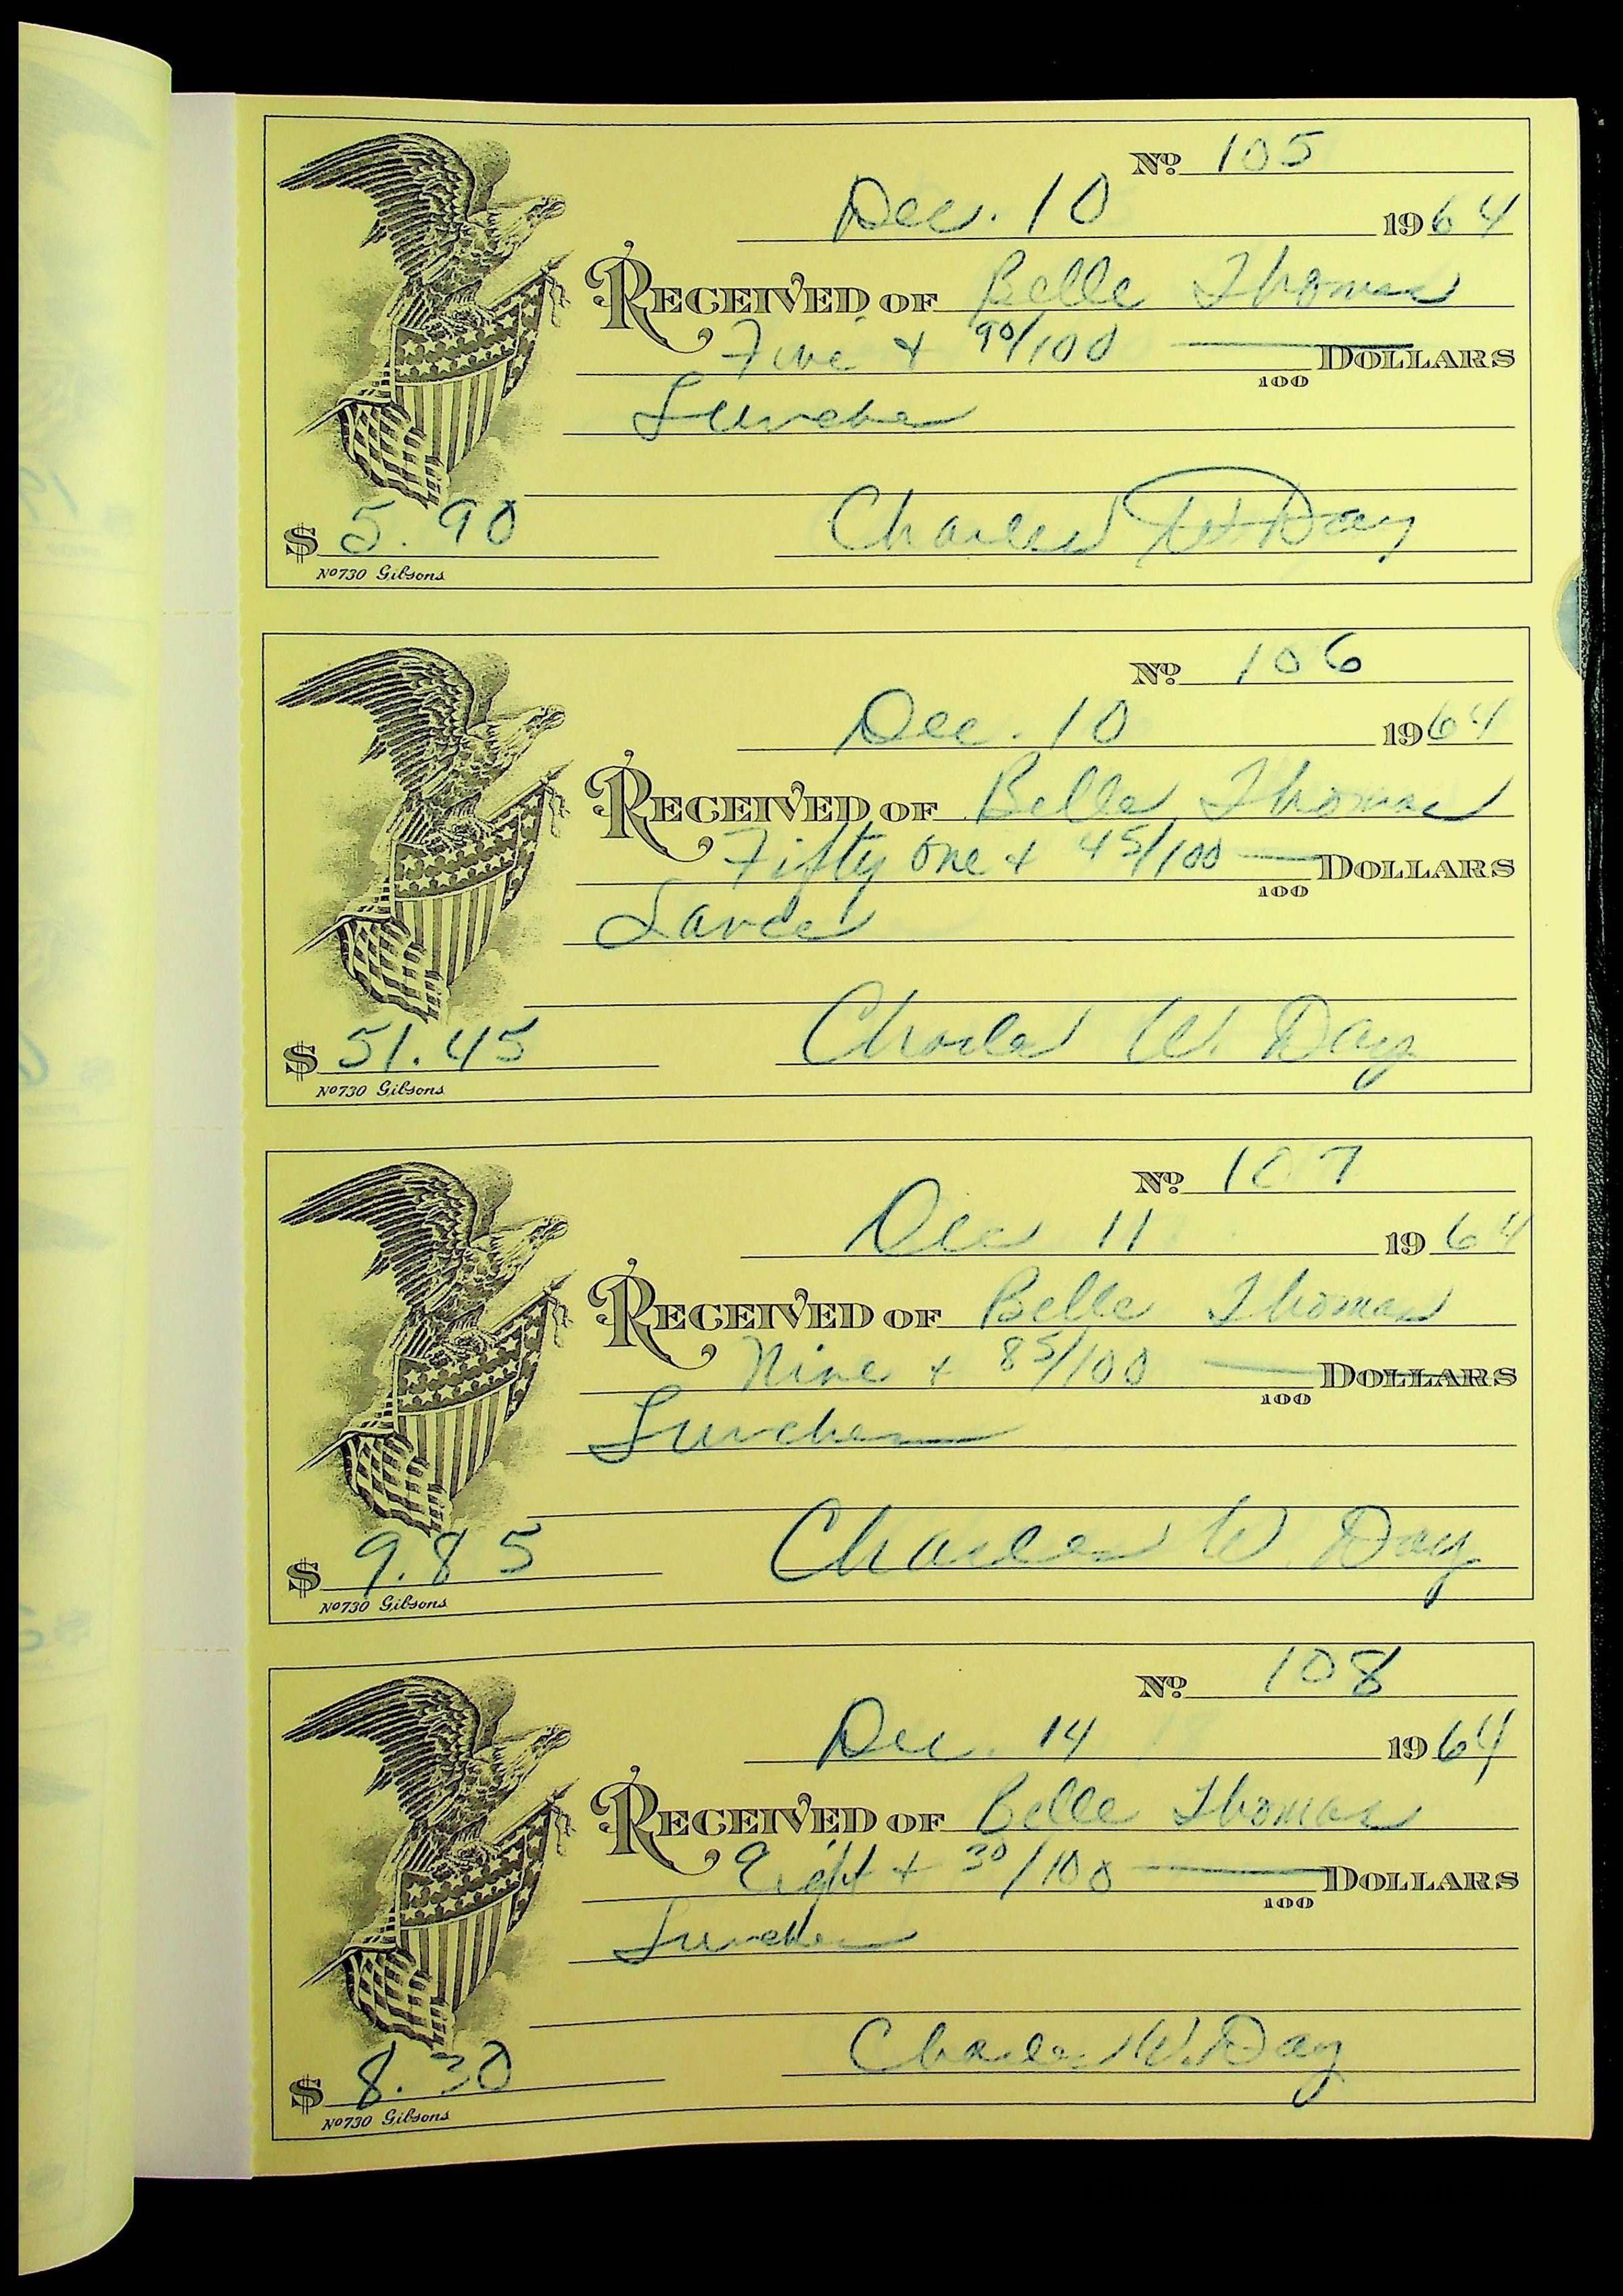 No. 105
Dec. 10 1964
RECEIVED OF Belle Thomas
Five + 90/100 DOLLARS
100
Lunches
$ 5.90 Charles W Day
No 730 Gibsons
No. 106
Dec. 10 1964
RECEIVED OF Belle Thomas
Fifty one + 45/100 DOLLARS
100
Lance
$ 51.45 Charles W. Day
No 730 Gibsons
No. 107
Dec 11 1964
RECEIVED OF Belle Thomas
Nine + 85/100 DOLLARS
100
Lunches
$ 9.85 Charles W. Day
No 730 Gibsons
No. 108
Dec. 14 1964
RECEIVED OF Belle Thomas
Eight + 30/100 DOLLARS
100
Lunches
$ 8.30 Charles W. Day
No 730 Gibsons